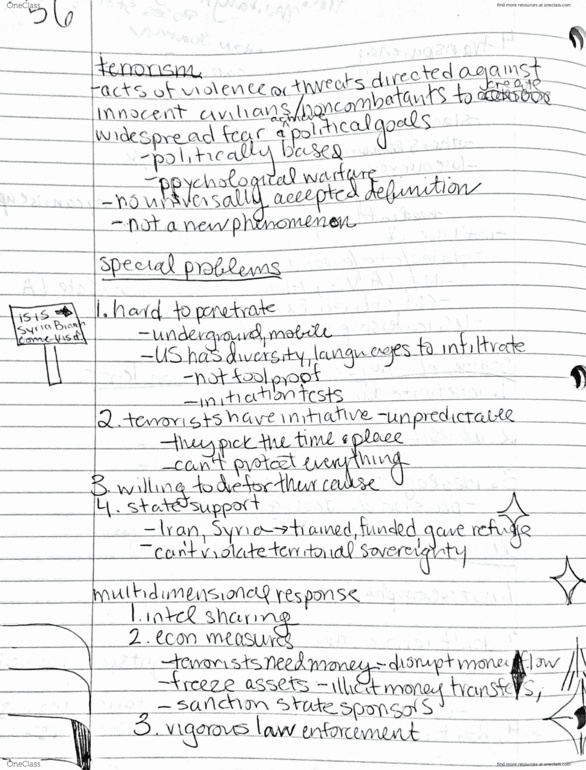 OneClass
find more resources at oneclass.com
56
terrorism
-acts of violence or threats directed against
innocent civilians/noncombatants to create
widespread fear achieve political goals
-politically based
-psychological warfare
-no universally accepted definition
-not a new phenomenon
special problems
1. hard to penetrate
-underground, mobile
ISIS →
Syria Branch
come visit
-US has diversity, languages to infiltrate
-not foolproof
-initiation tests
2. terrorists have initiative -unpredictable
-they pick the time & place
-can't protect everything
3. willing to die for their cause
4. state support
-Iran, Syria → trained, funded, gave refuge
-can't violate territorial sovereignty
multidimensional response
1. intel sharing
2. econ measures
-terrorists need money - disrupt money flow
-freeze assets - illicit money transfers,
- sanction state sponsors
3. vigorous law enforcement
OneClass
find more resources at oneclass.com